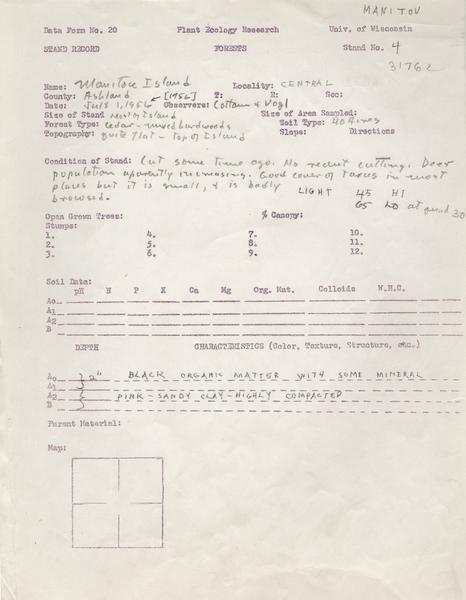 MANITOU
Data Form No. 20 Plant Ecology Research Univ. of Wisconsin
STAND RECORD FORESTS Stand No. 4
31762
Name: Manitou Island Locality: CENTRAL
County: Ashland [1956] T: R: Sec:
Date: July 1, 1956 Observers: Cottam & Vogl
Size of Stand Most of Island Size of Area Sampled:
Forest Type: Cedar-mixed hardwoods Soil Type: 40 Acres
Topography: Quite flat - top of Island Slope: Directions
Condition of Stand: Cut some time ago. No recent cutting. Deer
population aparently increasing. Good cover of Taxus in most
places but it is small, & is badly
browsed. LIGHT 45 HI
65 LO at quad 30
Open Grown Trees: % Canopy:
Stumps:
1. 4. 7. 10.
2. 5. 8. 11.
3. 6. 9. 12.
Soil Data:
pH N P K Ca Mg Org. Mat. Colloids W.H.C.
Ao
A1
A2
B
DEPTH CHARACTERISTICS (Color, Texture, Structure, etc.)
Ao } 2" BLACK ORGANIC MATTER WITH SOME MINERAL
A1
A2 } PINK-SANDY CLAY-HIGHLY COMPACTED
B
Parent Material:
Map: